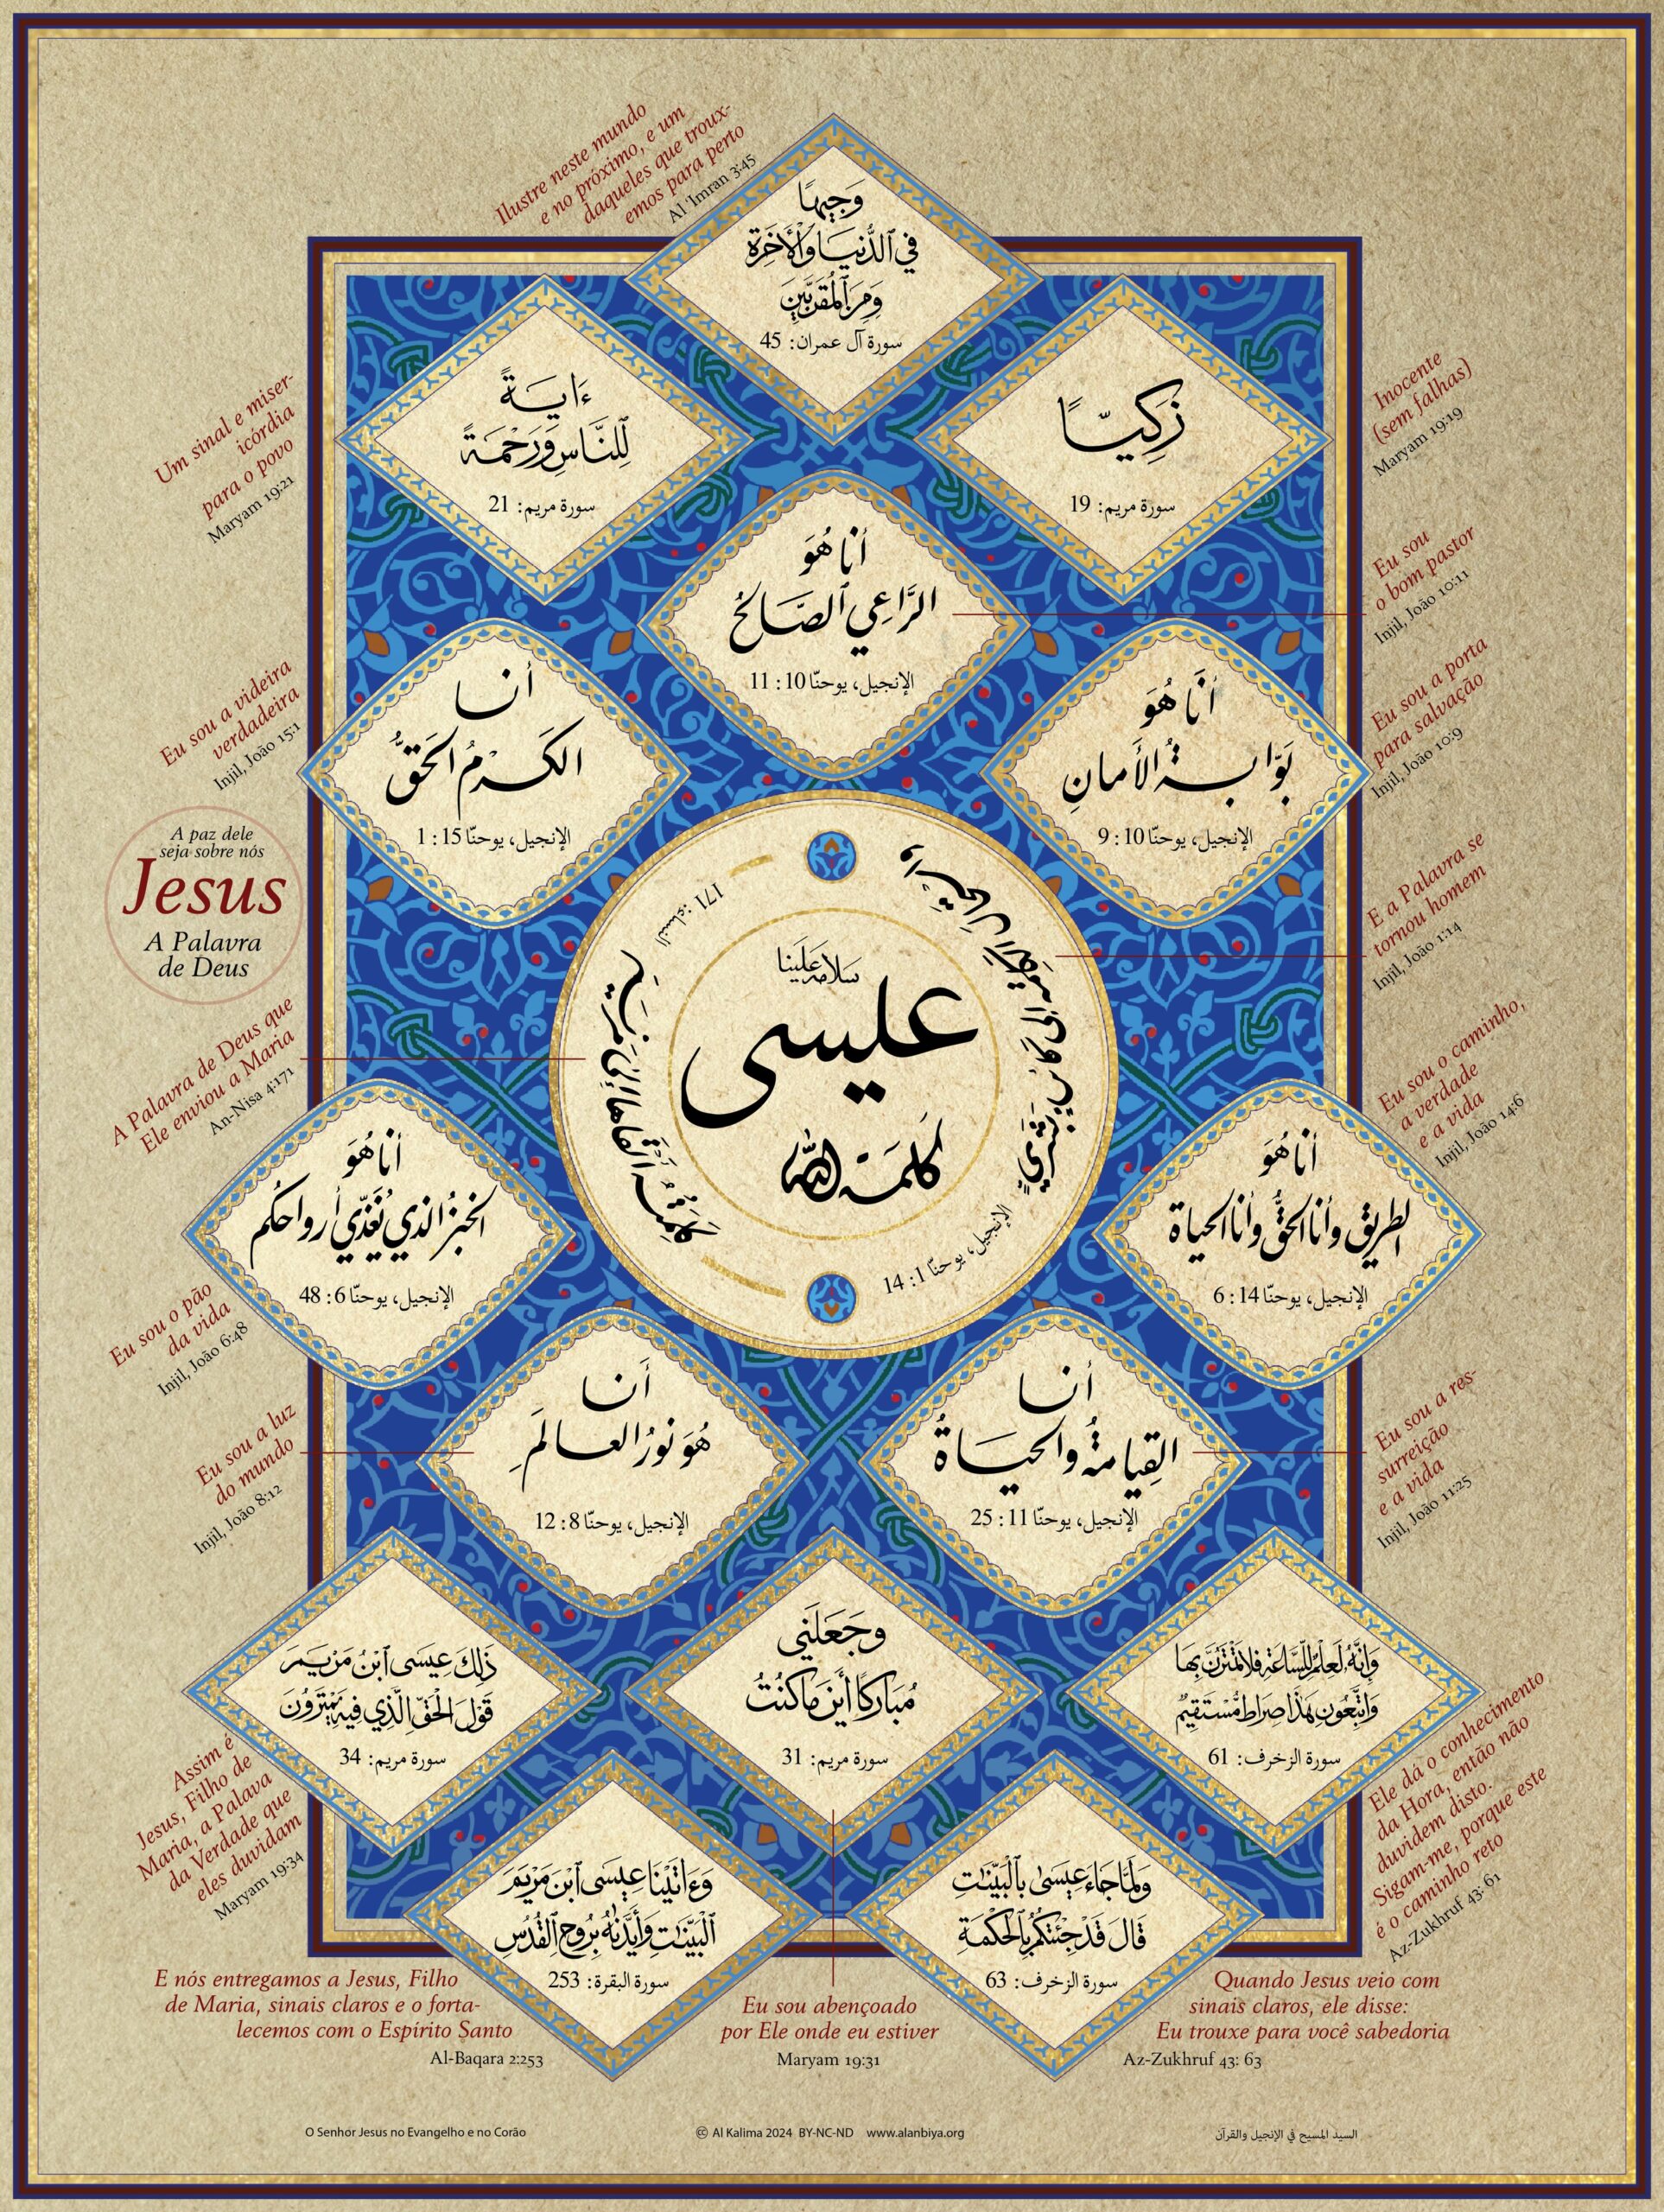 Ilustre neste mundo
e no próximo, e um
daqueles que troux-
emos para perto
Al 'Imran 3:45
وَجِيهًا
فِي ٱلدُّنْيَا وَٱلْأَخِرَةِ
وَمِنَ ٱلْمُقَرَّبِينَ
سورة آل عمران: 45
Um sinal e miser-
icórdia
para o povo
Maryam 19:21
ءَايَةً
لِّلنَّاسِ وَرَحْمَةً
سورة مريم: 21
زَكِيًّا
سورة مريم: 19
Inocente
(sem falhas)
Maryam 19:19
أنا هُوَ
الرَّاعِي ٱلصَّالِحُ
الإنجيل، يوحنّا 10 : 11
Eu sou
o bom pastor
Injil, João 10:11
Eu sou a videira
verdadeira
Injil, João 15:1
أنا
الكَرْمُ الحَقُّ
الإنجيل، يوحنّا 15 : 1
أنَا هُوَ
بَوّابةُ الأَمانِ
الإنجيل، يوحنّا 10 : 9
Eu sou a porta
para salvação
Injil, João 10:9
A paz dele
seja sobre nós
Jesus
A Palavra
de Deus
سلامه علينا
عيسى
كلمة الله
النساء: 171
الإنجيل، يوحنّا 1 : 14
E a Palavra se
tornou homem
Injil, João 1:14
A Palavra de Deus que
Ele enviou a Maria
An-Nisa 4:171
أنا هُوَ
الخبزُ الذي يُغَذّي أرواحكُم
الإنجيل، يوحنّا 6 : 48
Eu sou o pão
da vida
Injil, João 6:48
أنا هُوَ
الطريقُ وأنا الحقُّ وأنا الحياة
الإنجيل، يوحنّا 14 : 6
Eu sou o caminho,
a verdade
e a vida
Injil, João 14:6
Eu sou a luz
do mundo
Injil, João 8:12
أَنا
هُوَ نورُ العالَمِ
الإنجيل، يوحنّا 8 : 12
أنا
القِيامةُ والحياةُ
الإنجيل، يوحنّا 11 : 25
Eu sou a res-
surreição
e a vida
Injil, João 11:25
ذَٰلِكَ عِيسَى ٱبْنُ مَرْيَمَ
قَوْلَ الْحَقِّ الَّذِي فِيهِ يَمْتَرُونَ
سورة مريم: 34
Assim é
Jesus, Filho de
Maria, a Palava
da Verdade que
eles duvidam
Maryam 19:34
وَجَعَلَنِي
مُبَارَكًا أَيْنَ مَا كُنتُ
سورة مريم: 31
وَإِنَّهُ لَعِلْمٌ لِّلسَّاعَةِ فَلَا تَمْتَرُنَّ بِهَا
وَاتَّبِعُونِ هَٰذَا صِرَاطٌ مُّسْتَقِيمٌ
سورة الزخرف: 61
Ele dá o conhecimento
da Hora, então não
duvidem disto.
Sigam-me, porque este
é o caminho reto
Az-Zukhruf 43: 61
وَءَاتَيْنَا عِيسَى ٱبْنَ مَرْيَمَ
ٱلْبَيِّنَٰتِ وَأَيَّدْنَٰهُ بِرُوحِ ٱلْقُدُسِ
سورة البقرة: 253
E nós entregamos a Jesus, Filho
de Maria, sinais claros e o forta-
lecemos com o Espírito Santo
Al-Baqara 2:253
Eu sou abençoado
por Ele onde eu estiver
Maryam 19:31
وَلَمَّا جَاءَ عِيسَىٰ بِٱلْبَيِّنَٰتِ
قَالَ قَدْ جِئْتُكُم بِالْحِكْمَةِ
سورة الزخرف: 63
Quando Jesus veio com
sinais claros, ele disse:
Eu trouxe para você sabedoria
Az-Zukhruf 43: 63
O Senhor Jesus no Evangelho e no Corão
Al Kalima 2024 BY-NC-ND www.alanbiya.org
السيد المسيح في الإنجيل والقرآن